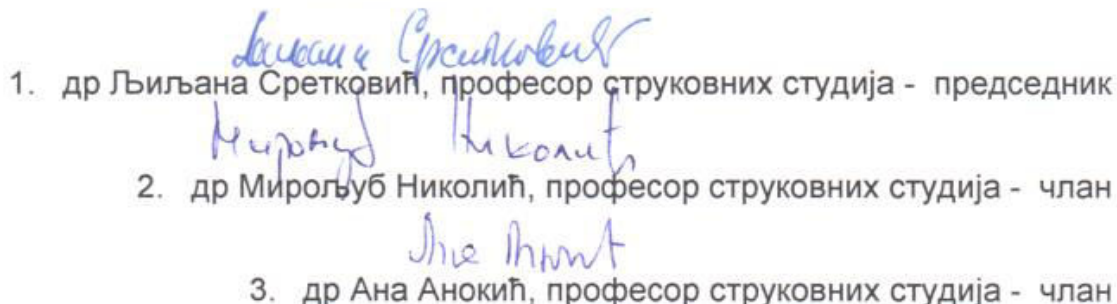 1. др Љиљана Сретковић, професор струковних студија - председник
Николић
2. др Мирољуб Николић, професор струковних студија - члан
3. др Ана Анокић, професор струковних студија - члан